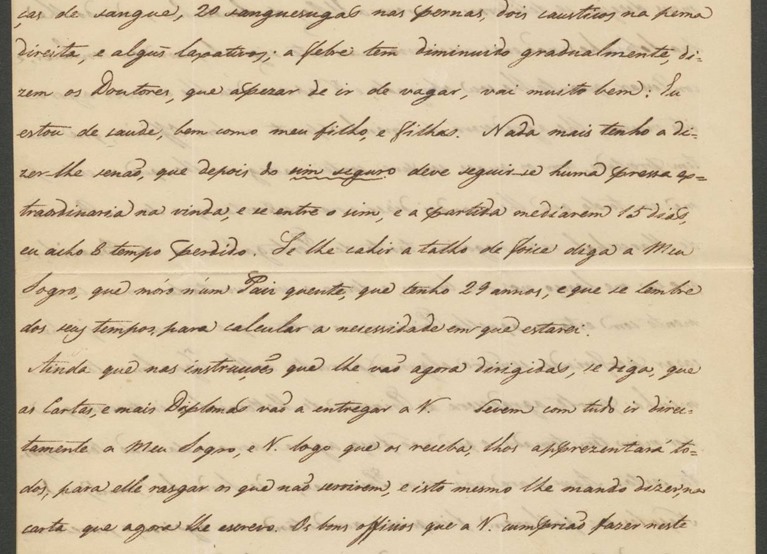 ças de sangue, 20 sanguesugas nas pernas, dois causticos na perna
direita, e algũs laxativos; a febre tem diminuido gradualmente, di=
zem os Doutores, que apezar de ir de vagar, vai muito bem: Eu
estou de saude, bem como meu filho, e filhas. Nada mais tenho a di=
zer-lhe senaõ, que depois do sim seguro deve seguir-se huma pressa ex=
traordinaria na vinda, e se entre o sim, e a partida mediarem 15 dias,
eu acho tempo perdido. Se lhe cahir a talho de foice diga a Meu
Sogro, que móro n'um Paiz quente, que tenho 29 annos, e que se lembre
dos seus tempos, para calcular a necessidade em que estarei.
Ainda que nas instrucções que lhe vaõ agora dirigidas, se diga, que
as Cartas, e mais Diplomas vaõ a entregar a V. devem com tudo ir direc=
tamente a Meu Sogro, e V. logo que os receba, lhos apprezentará to=
dos, para elle rasgar os que naõ servirem, e isto mesmo lhe mando dizer, na
carta que agora lhe escrevo. Os bons officios que a V. cumpriaõ fazer neste